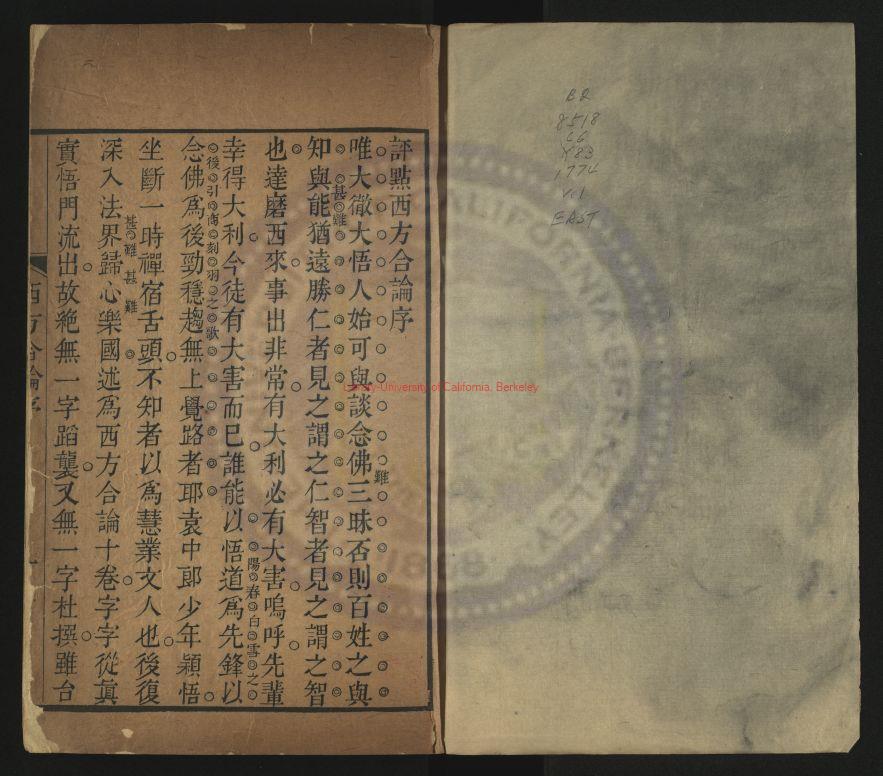 評點西方合論序
唯大徹大悟人始可與談念佛三昧否則百姓之與
難
知與能猶遠勝仁者見之謂之仁智者見之謂之智
甚難
也達磨西來事出非常有大利必有大害嗚呼先輩
幸得大利今徒有大害而巳誰能以悟道爲先鋒以
陽春白雪之
念佛爲後勁穩趨無上覺路者耶袁中郎少年穎悟
後引商刻羽之歌
坐斷一時禪宿舌頭不知者以爲慧業文人也後復
深入法界歸心樂國述爲西方合論十卷字字從眞
甚難甚難
實悟門流出故絶無一字蹈襲又無一字杜撰雖台
西方合論序
一
Library-University of California, Berkeley
BQ
8518
C6
Y83
1774
v.1
EAST